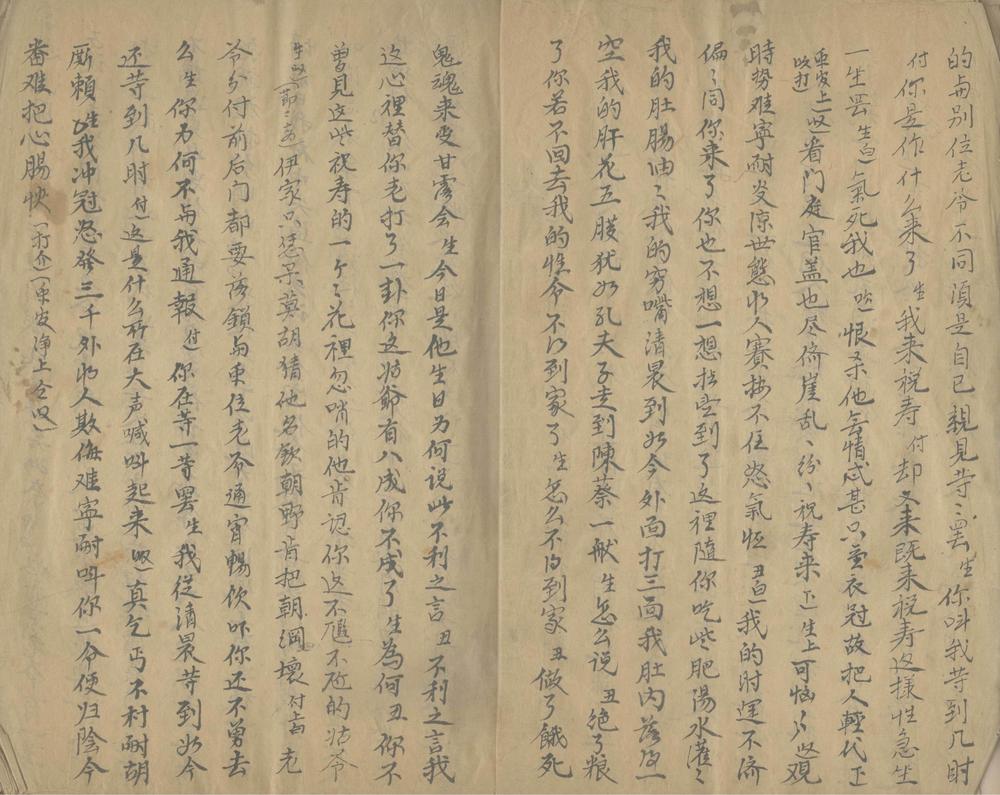 的与别位老爷不同湏是自已親見等〻罢生你呌我等到几时
付你是作什么来了生我来祝寿付却又来既来祝寿这樣性急坐
一生罢生白氣死我也唑恨杀他无情忒甚只重衣冠故把人輕代下
重发上吹打看门庭官盖也尽儕崖乱〻纷〻祝寿来下生上可恼〻〻观
時势难寧耐炎凉世態收人赛按不住怒氣恆丑白我的时運不济
偏〻同你来了你也不想一想指望到了这裡隨你吃些肥湯水灌〻
我的肚腸油〻我的穷嘴清晨到如今外面打三鼓我肚内落得一
空我的肝花五臟犹如孔夫子走到陳蔡一般生怎么说丑绝了粮
了你若不回去我的性命不得到家了生怎么不得到家丑做了餓死
鬼魂来受甘露会生今日是他生日为何说此不利之言丑不利之言我
这心裡替你老打了一卦你这姑爺有八成你不成了生為何丑你不
曽見这些祝寿的一个〻花裡忽哨的他肯認你这不尴不尬的姑爷
生唱伊家只恁呆莫胡猜他名欽朝野肯把朝綱壞付上白老
爷分付前后门都要落鎖与重位老爷通宵暢饮吓你还不曽去
么生你为何不与我通報付你在等一等罢生我従清晨等到如今
还等到几时付这是什么所在大声喊呌起来唱真乞丐不村耐胡
厮賴生我冲冠怒發三千外收人欺侮难寧耐呌你一命便归陰今
番难把心腸快打介重发净上仝唱